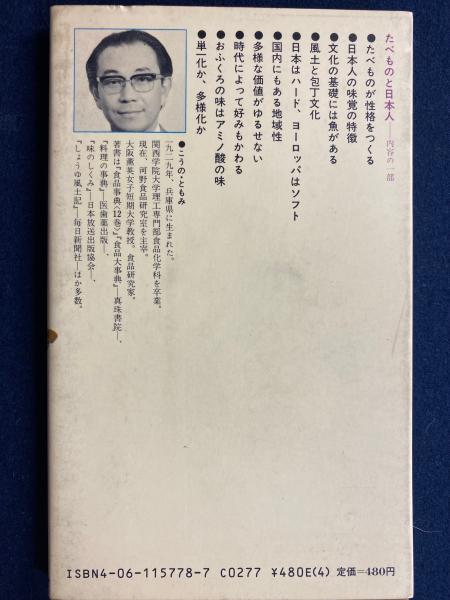 たべものと日本人——内容の一部
●たべものが性格をつくる
●日本人の味覚の特徴
●文化の基礎には魚がある
●風土と包丁文化
●日本はハード、ヨーロッパはソフト
●国内にもある地域性
●多様な価値がゆるせない
●時代によって好みもかわる
●おふくろの味はアミノ酸の味
●単一化か、多様化か
●こうの・ともみ
一九二九年、兵庫県に生まれた。
関西学院大学理工専門部食品化学科を卒業。
現在、河野食品研究室を主宰。
大阪薫英女子短期大学教授。食品研究家。
著書は『食品事典〈12巻〉』『食品大事典』—真珠書院—、
『料理の事典』—医歯薬出版—、
『味のしくみ』—日本放送出版協会—、
『しょうゆ風土記』—毎日新聞社—ほか多数。
ISBN4-06-115778-7 C0277 ¥480E(4) 定価=480円